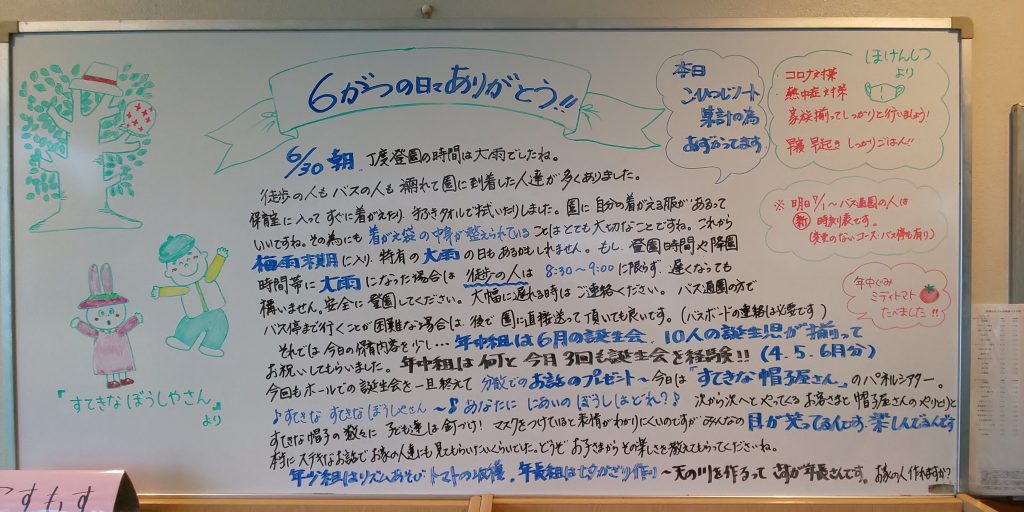 6がつの日々ありがとう!!
本日
こひつじノート
集計の為
あずかってます
ほけんしつ
より
コロナ対策
熱中症対策
家族揃ってしっかりと行いましょう!
早寝 早起き しっかりごはん!!
6/30 朝、丁度登園の時間は大雨でしたね。
徒歩の人もバスの人も濡れて園に到着した人達が多くありました。
保育室に入ってすぐに着がえたり、タオルで拭いたりしました。園に自分の着がえる服があるって
いいですね。その為にも着がえ袋の中身が整えられていることはとても大切なことですね。これから
梅雨時期に入り、特有の大雨の日もあるかもしれません。もし、登園時間や降園
時間帯に大雨になった場合は、徒歩の人は 8:30~9:00に限らず、遅くなっても
構いません。安全に登園してください。大幅に遅れる時はご連絡ください。バス通園の方で
バス停まで行くことが困難な場合は、後で園に直接送って頂いても良いです。(バスボードの連絡は必要です)
それでは今日の保育内容を少し…年中組は6月の誕生会、10人の誕生児が揃って
お祝いしてもらいました。年中組は何と今月3回も誕生会を経験!!(4.5.6月分)
今回もホールでの誕生会を一旦終えて 分散でのお話のプレゼント~今日は『すてきな帽子屋さん』のパネルシアター。
♪すてきな すてきな ぼうしやさん~♪ あなたに にあいの ぼうしは どれ?♪ 次から次へとやってくるお客さまと帽子屋さんのやりとりと
すてきな帽子の数々に 子ども達は釘づけ! マスクをつけていると表情がわかりにくいのですがみんなの目が笑ってるんです、楽しんでるんです
本当にステキなお話でお家の人達にも見てもらいたいくらいでした。どうぞ お子さまからその楽しさを教えてもらってくださいね。
年少組はリズムあそび トマトの収穫、年長組は七夕かざり作り~天の川を作るって さすが年長さんです。お家の人作れますか?
※ 明日7/1~バス通園の人は
新 時刻表です。
(変更のないコース・バス停も有り)
年中ぐみ
ミディトマト
たべました!!
『すてきなぼうしやさん』
より
こすもす